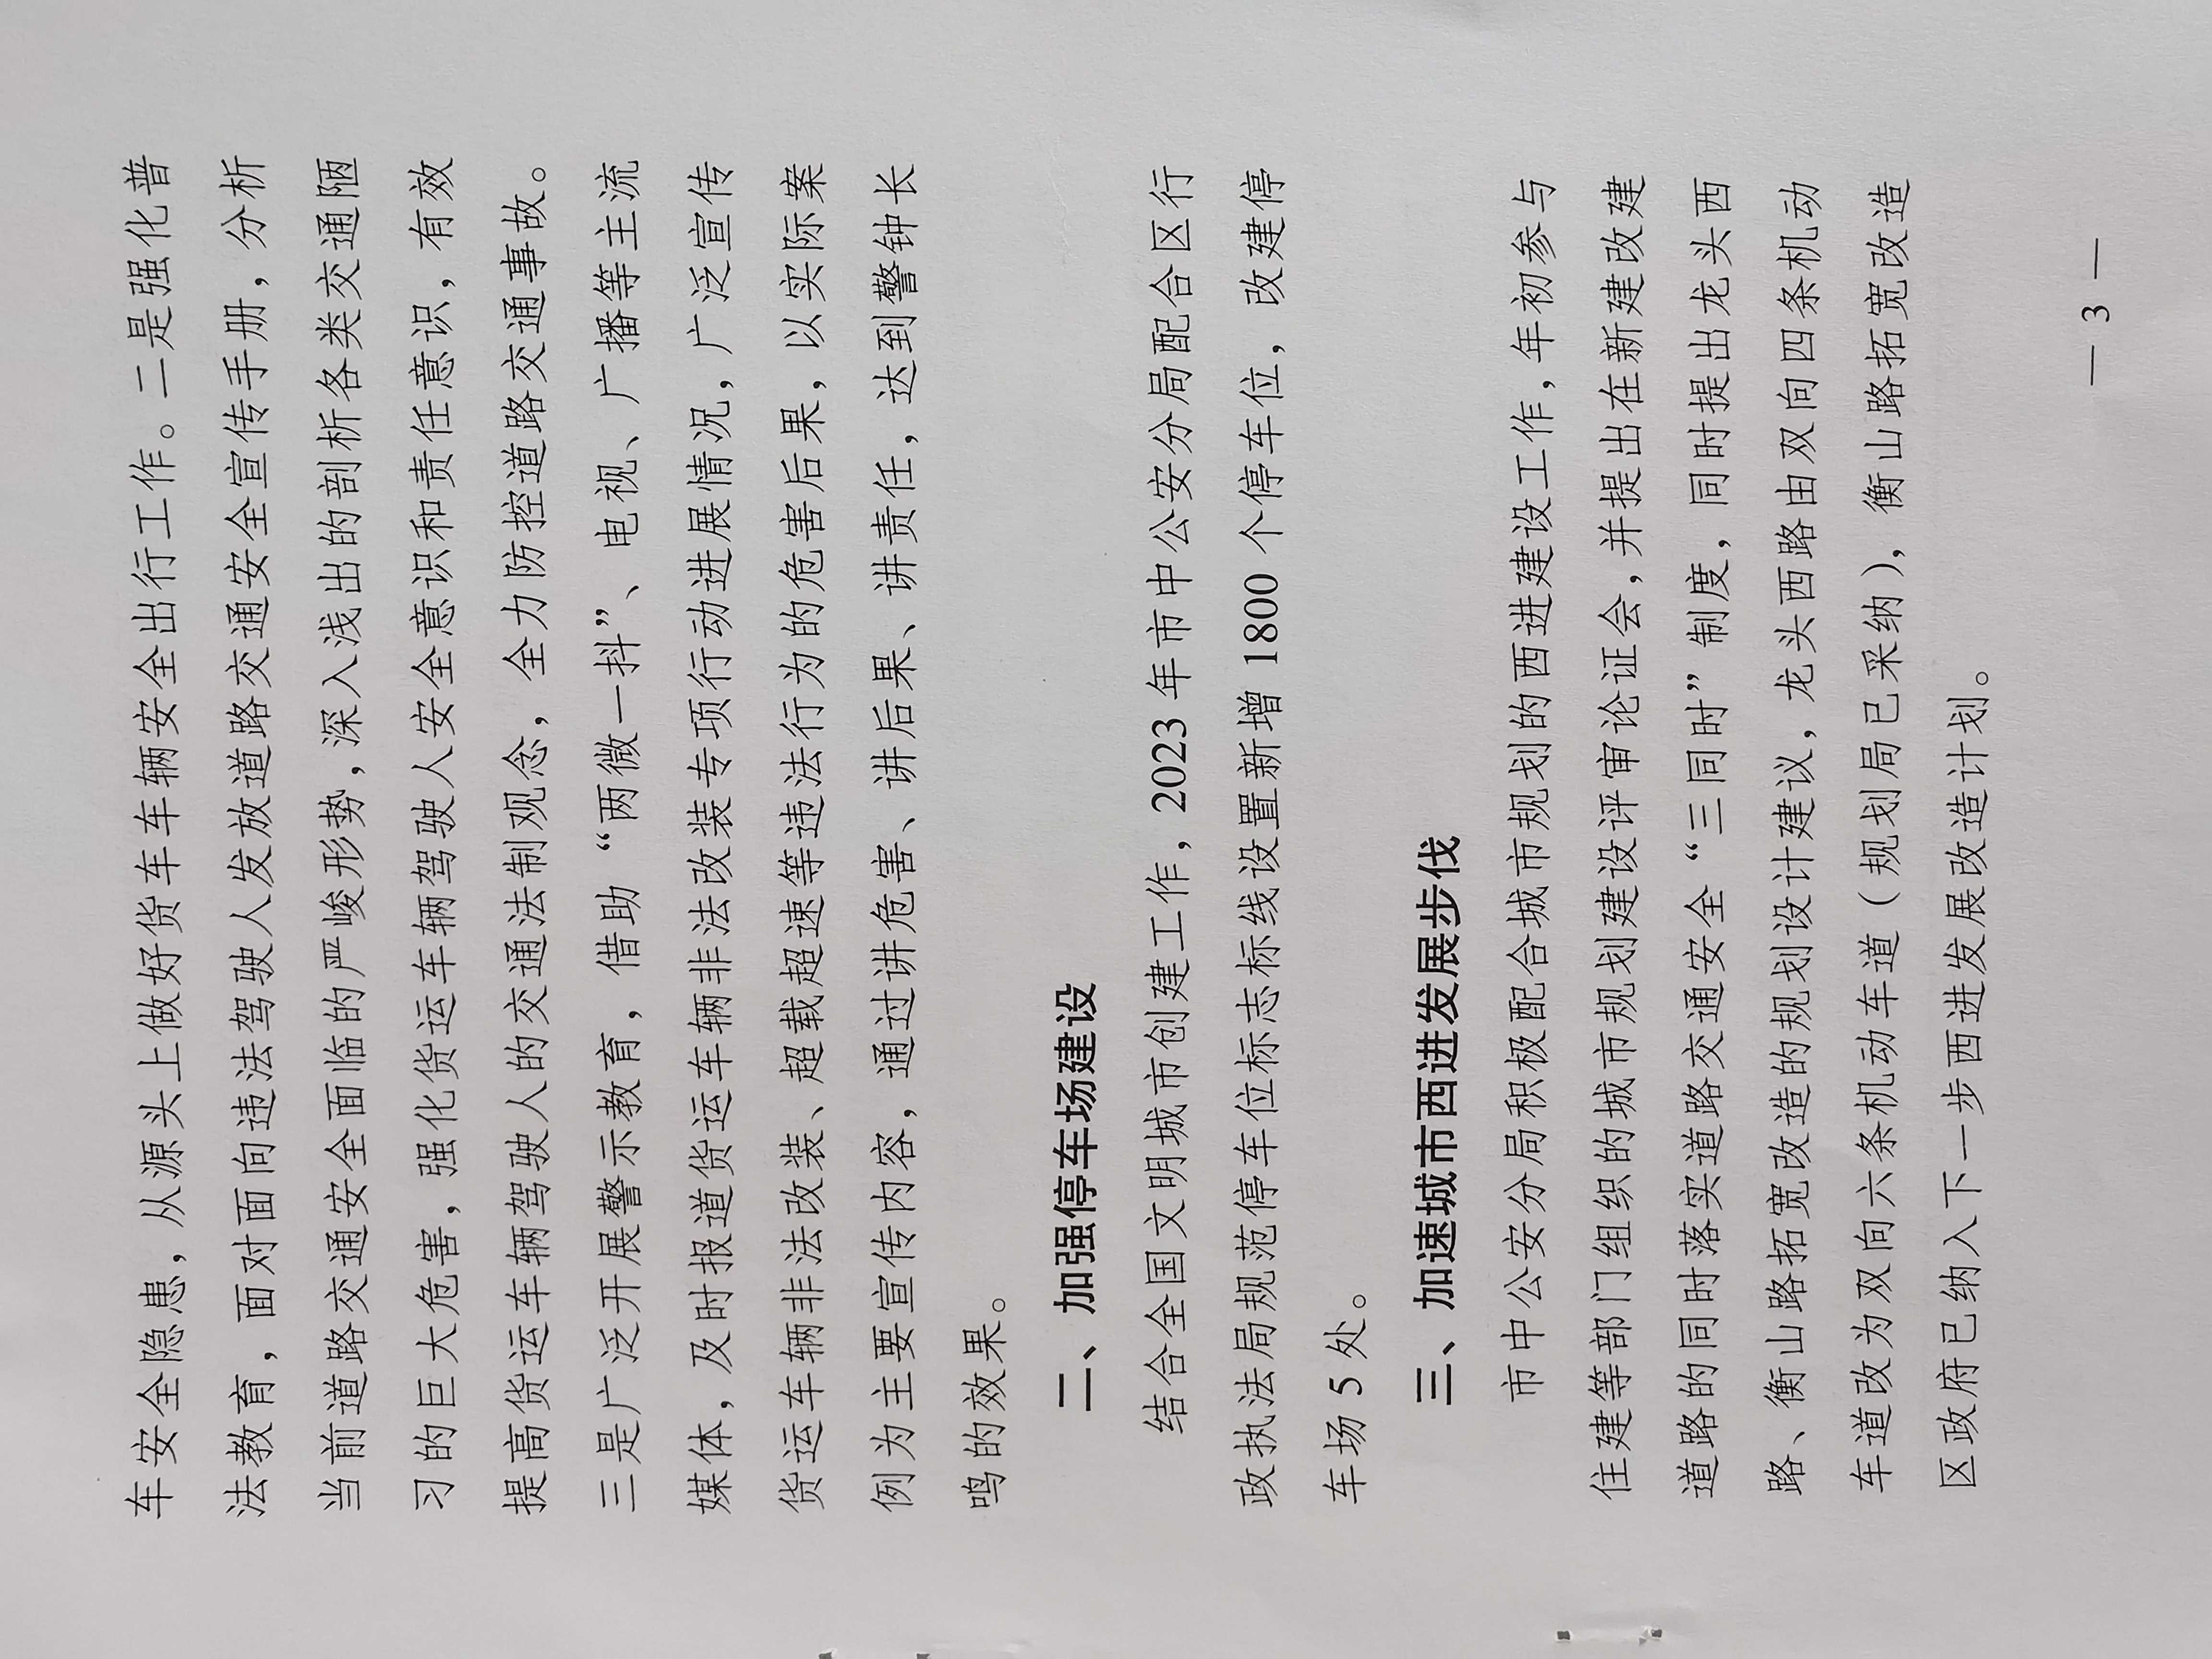 车安全隐患，从源头上做好货车车辆安全出行工作。二是强化普
法教育，面对面向违法驾驶人发放道路交通安全宣传手册，分析
当前道路交通安全面临的严峻形势，深入浅出的剖析各类交通陋
习的巨大危害，强化货运车辆驾驶人安全意识和责任意识，有效
提高货运车辆驾驶人的交通法制观念，全力防控道路交通事故。
三是广泛开展警示教育，借助“两微一抖”、电视、广播等主流
媒体，及时报道货运车辆非法改装专项行动进展情况，广泛宣传
货运车辆非法改装、超载超速等违法行为的危害后果，以实际案
例为主要宣传内容，通过讲危害、讲后果、讲责任，达到警钟长
鸣的效果。
二、加强停车场建设
结合全国文明城市创建工作，2023 年市中公安分局配合区行
政执法局规范停车位标志标线设置新增 1800 个停车位，改建停
车场 5 处。
三、加速城市西进发展步伐
市中公安分局积极配合城市规划的西进建设工作，年初参与
住建等部门组织的城市规划建设评审论证会，并提出在新建改建
道路的同时落实道路交通安全“三同时”制度，同时提出龙头西
路、衡山路拓宽改造的规划设计建议，龙头西路由双向四条机动
车道改为双向六条机动车道（规划局已采纳），衡山路拓宽改造
区政府已纳入下一步西进发展改造计划。
— 3 —